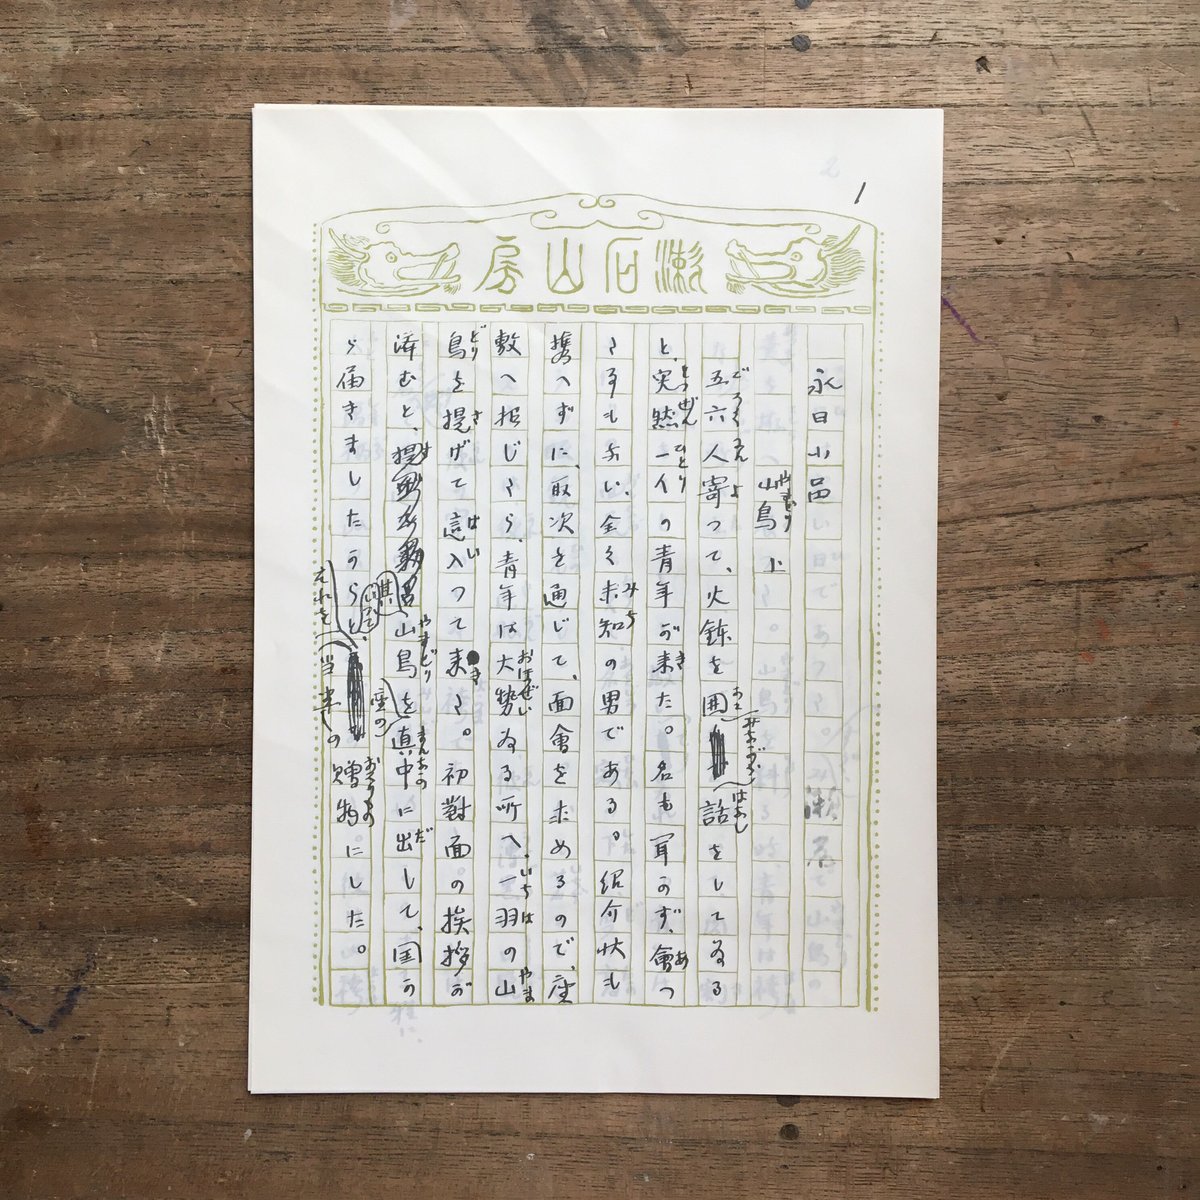 1
漱石山房
永日小品
漱石
山鳥
五六人寄つて、火鉢を囲話をしてゐる
と、突然一人の青年が来た。名も聞かず、會つ
た事もない、全く未知の男である。紹介状も
携へずに、取次を通じて、面會を求めるので、座
敷へ招じたら、青年は大勢ゐる所へ、一羽の山
鳥を提げて這入つて来た。初對面の挨拶が
済むと、其山鳥を座の真中に出して、国か
ら届きましたからと、それを当坐の贈物にした。